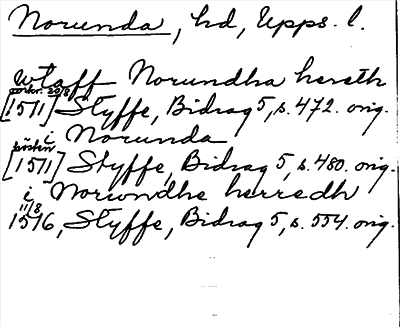 Norunda, hd, Upps. l.
wtaff Norundha hereth
omkr. 20/8
[1511] Styffe, Bidrag 5, s. 472. orig.
i Norunda
hösten
[1511] Styffe, Bidrag 5, s. 480. orig.
i Noriondhe herredh
11/8
1516, Styffe, Bidrag 5, s. 554. orig.